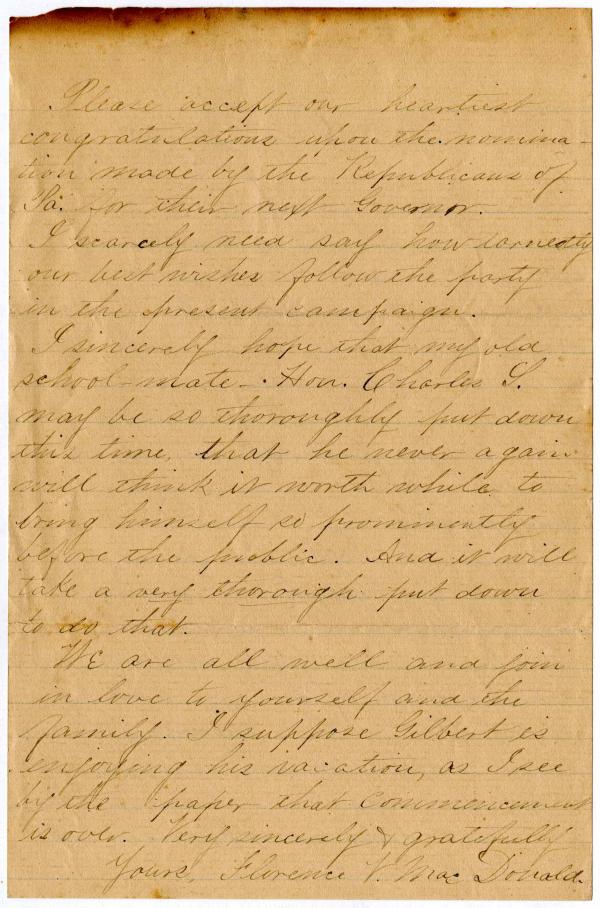 Please accept our heartiest
congratulations upon the nomina-
tion made by the Republicans of
Pa. for their next Governor.
I scarcely need say how earnestly
our best wishes follow the party
in the present campaign.
I sincerely hope that my old
school-mate - Hon. Charles S.
may be so thoroughly put down
this time, that he never again
will think it worth while to
bring himself so prominently
before the public. And it will
take a very thorough put down
to do that.
We are all well and join
in love to yourself and the
family. I suppose Gilbert is
enjoying his vacation, as I see
by the paper that Commencement
is over. Very sincerely & gratefully
Yours, Florence V. Mac Donald.